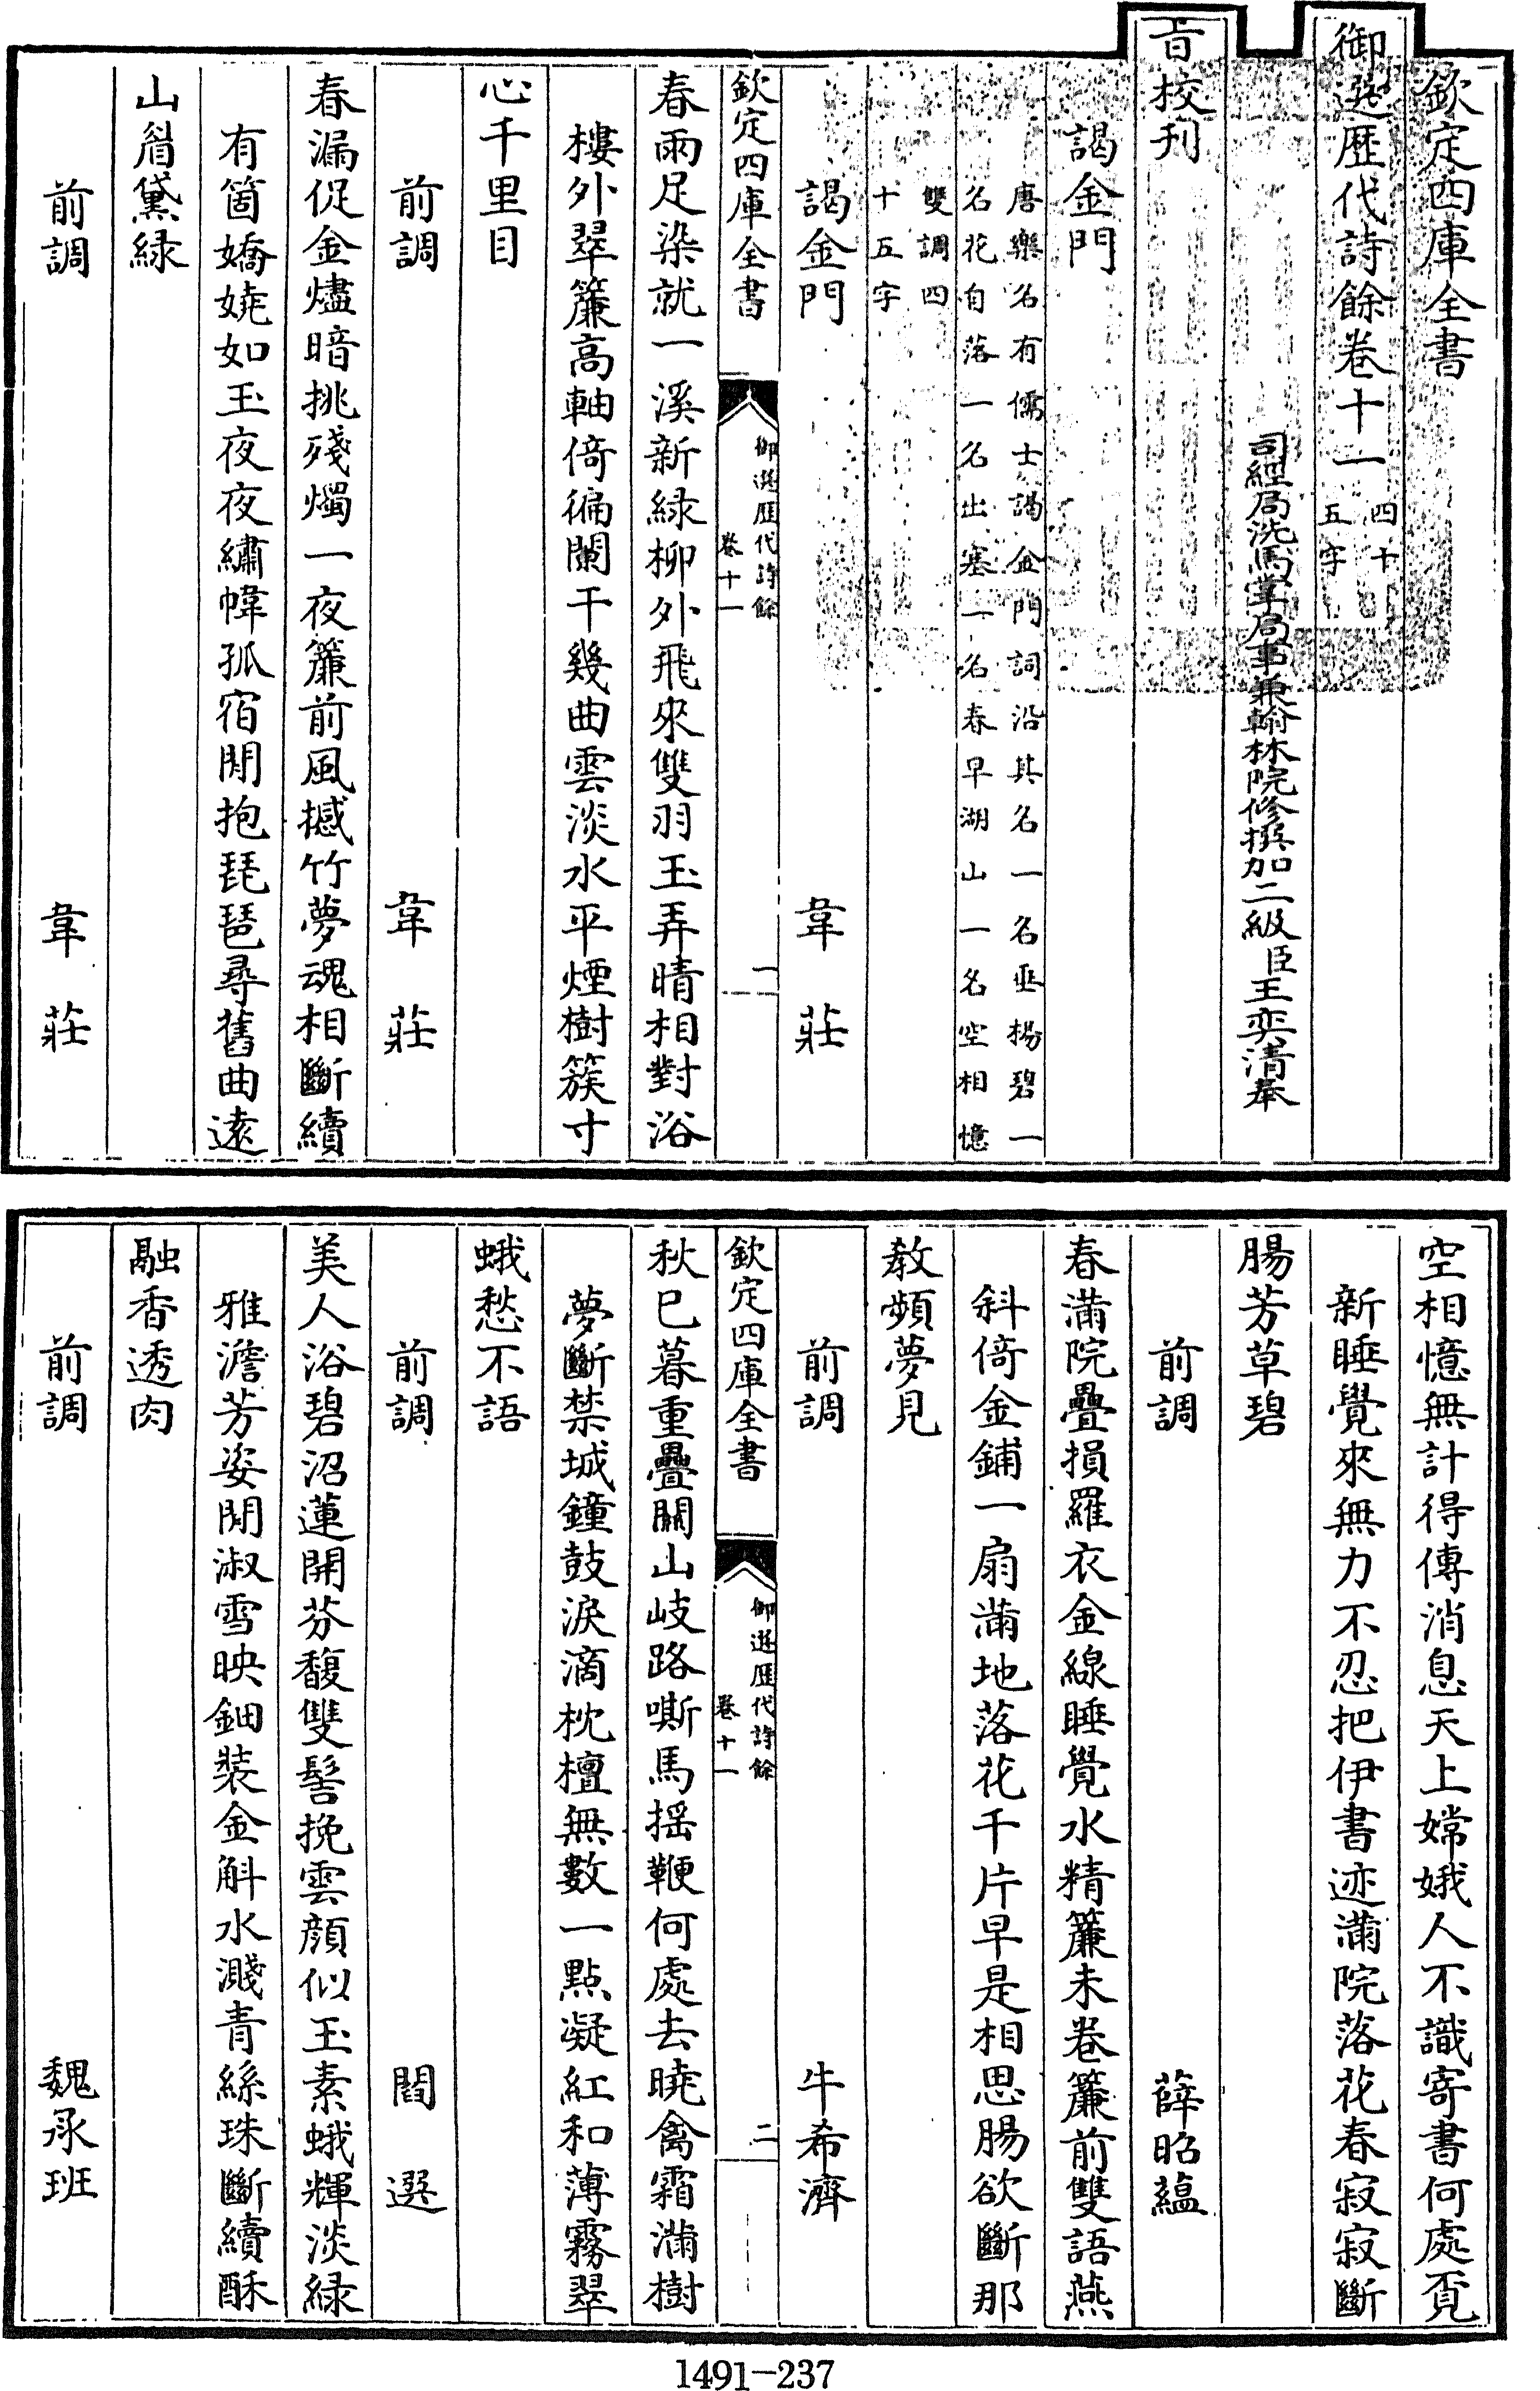 欽定四庫全書
御選歷代詩餘卷十一 四十五字
司經局洗馬掌局事兼翰林院修撰加二級臣王奕清奉
旨校刊
謁金門
唐樂名有儒士謁金門詞沿其名一名垂楊碧一
名花自落一名出塞一名春早湖山一名空相憶
雙調四
十五字
謁金門 韋莊
欽定四庫全書
御選歷代詩餘
卷十一
一
春雨足染就一溪新綠柳外飛來雙羽玉弄晴相對浴
樓外翠簾高軸倚徧闌干幾曲雲淡水平煙樹簇寸
心千里目
前調 韋莊
春漏促金燼暗挑殘燭一夜簾前風撼竹夢魂相斷續
有箇嬌嬈如玉夜夜繡幃孤宿閒抱琵琶尋舊曲遠
山眉黛綠
前調 韋莊
空相憶無計得傳消息天上嫦娥人不識寄書何處覓
新睡覺來無力不忍把伊書迹滿院落花春寂寂斷
腸芳草碧
前調 薛昭蘊
春滿院疊損羅衣金線睡覺水精簾未卷簾前雙語燕
斜倚金鋪一扇滿地落花千片早是相思腸欲斷那
教頻夢見
前調 牛希濟
欽定四庫全書
御選歷代詩餘
卷十一
二
秋已暮重疊關山岐路嘶馬摇鞭何處去曉禽霜滿樹
夢斷禁城鐘鼓淚滴枕檀無數一點凝紅和薄霧翠
蛾愁不語
前調 閻選
美人浴碧沼蓮開芬馥雙髻挽雲顔似玉素蛾輝淡綠
雅澹芳姿閒淑雪映鈿裝金斛水濺青絲珠斷續酥
融香透肉
前調 魏承班
1491-237